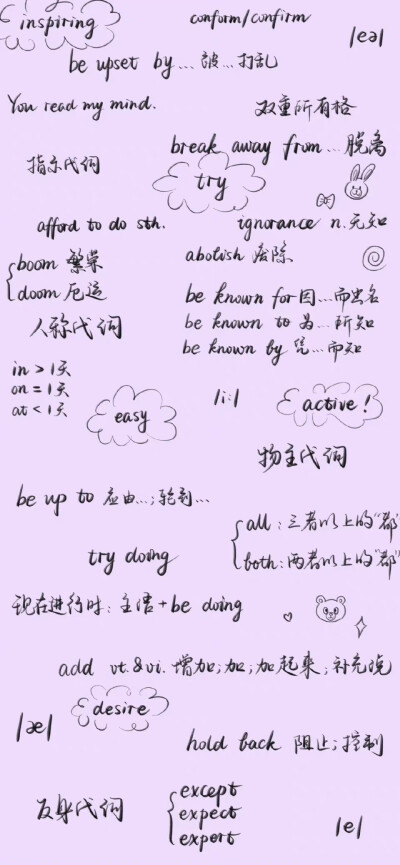 inspiring
conform/confirm
/eə/
be upset by...被...打乱
You read my mind.
双重所有格
break away from...脱离
指示代词
try
afford to do sth.
ignorance n.无知
boom 繁荣
doom 厄运
abolish 废除
be known for因...而出名
be known to 为...所知
be known by 凭...而知
人称代词
in > 1天
on = 1天
at < 1天
easy
/i:/
active!
物主代词
be up to 应由...;轮到...
all:三者以上的"都"
both:两者以上的"都"
try doing
现在进行时:主语+be doing
add vt.&vi.增加;加;加起来;补充说
desire
/æ/
hold back 阻止;控制
反身代词
except
expect
export
/e/